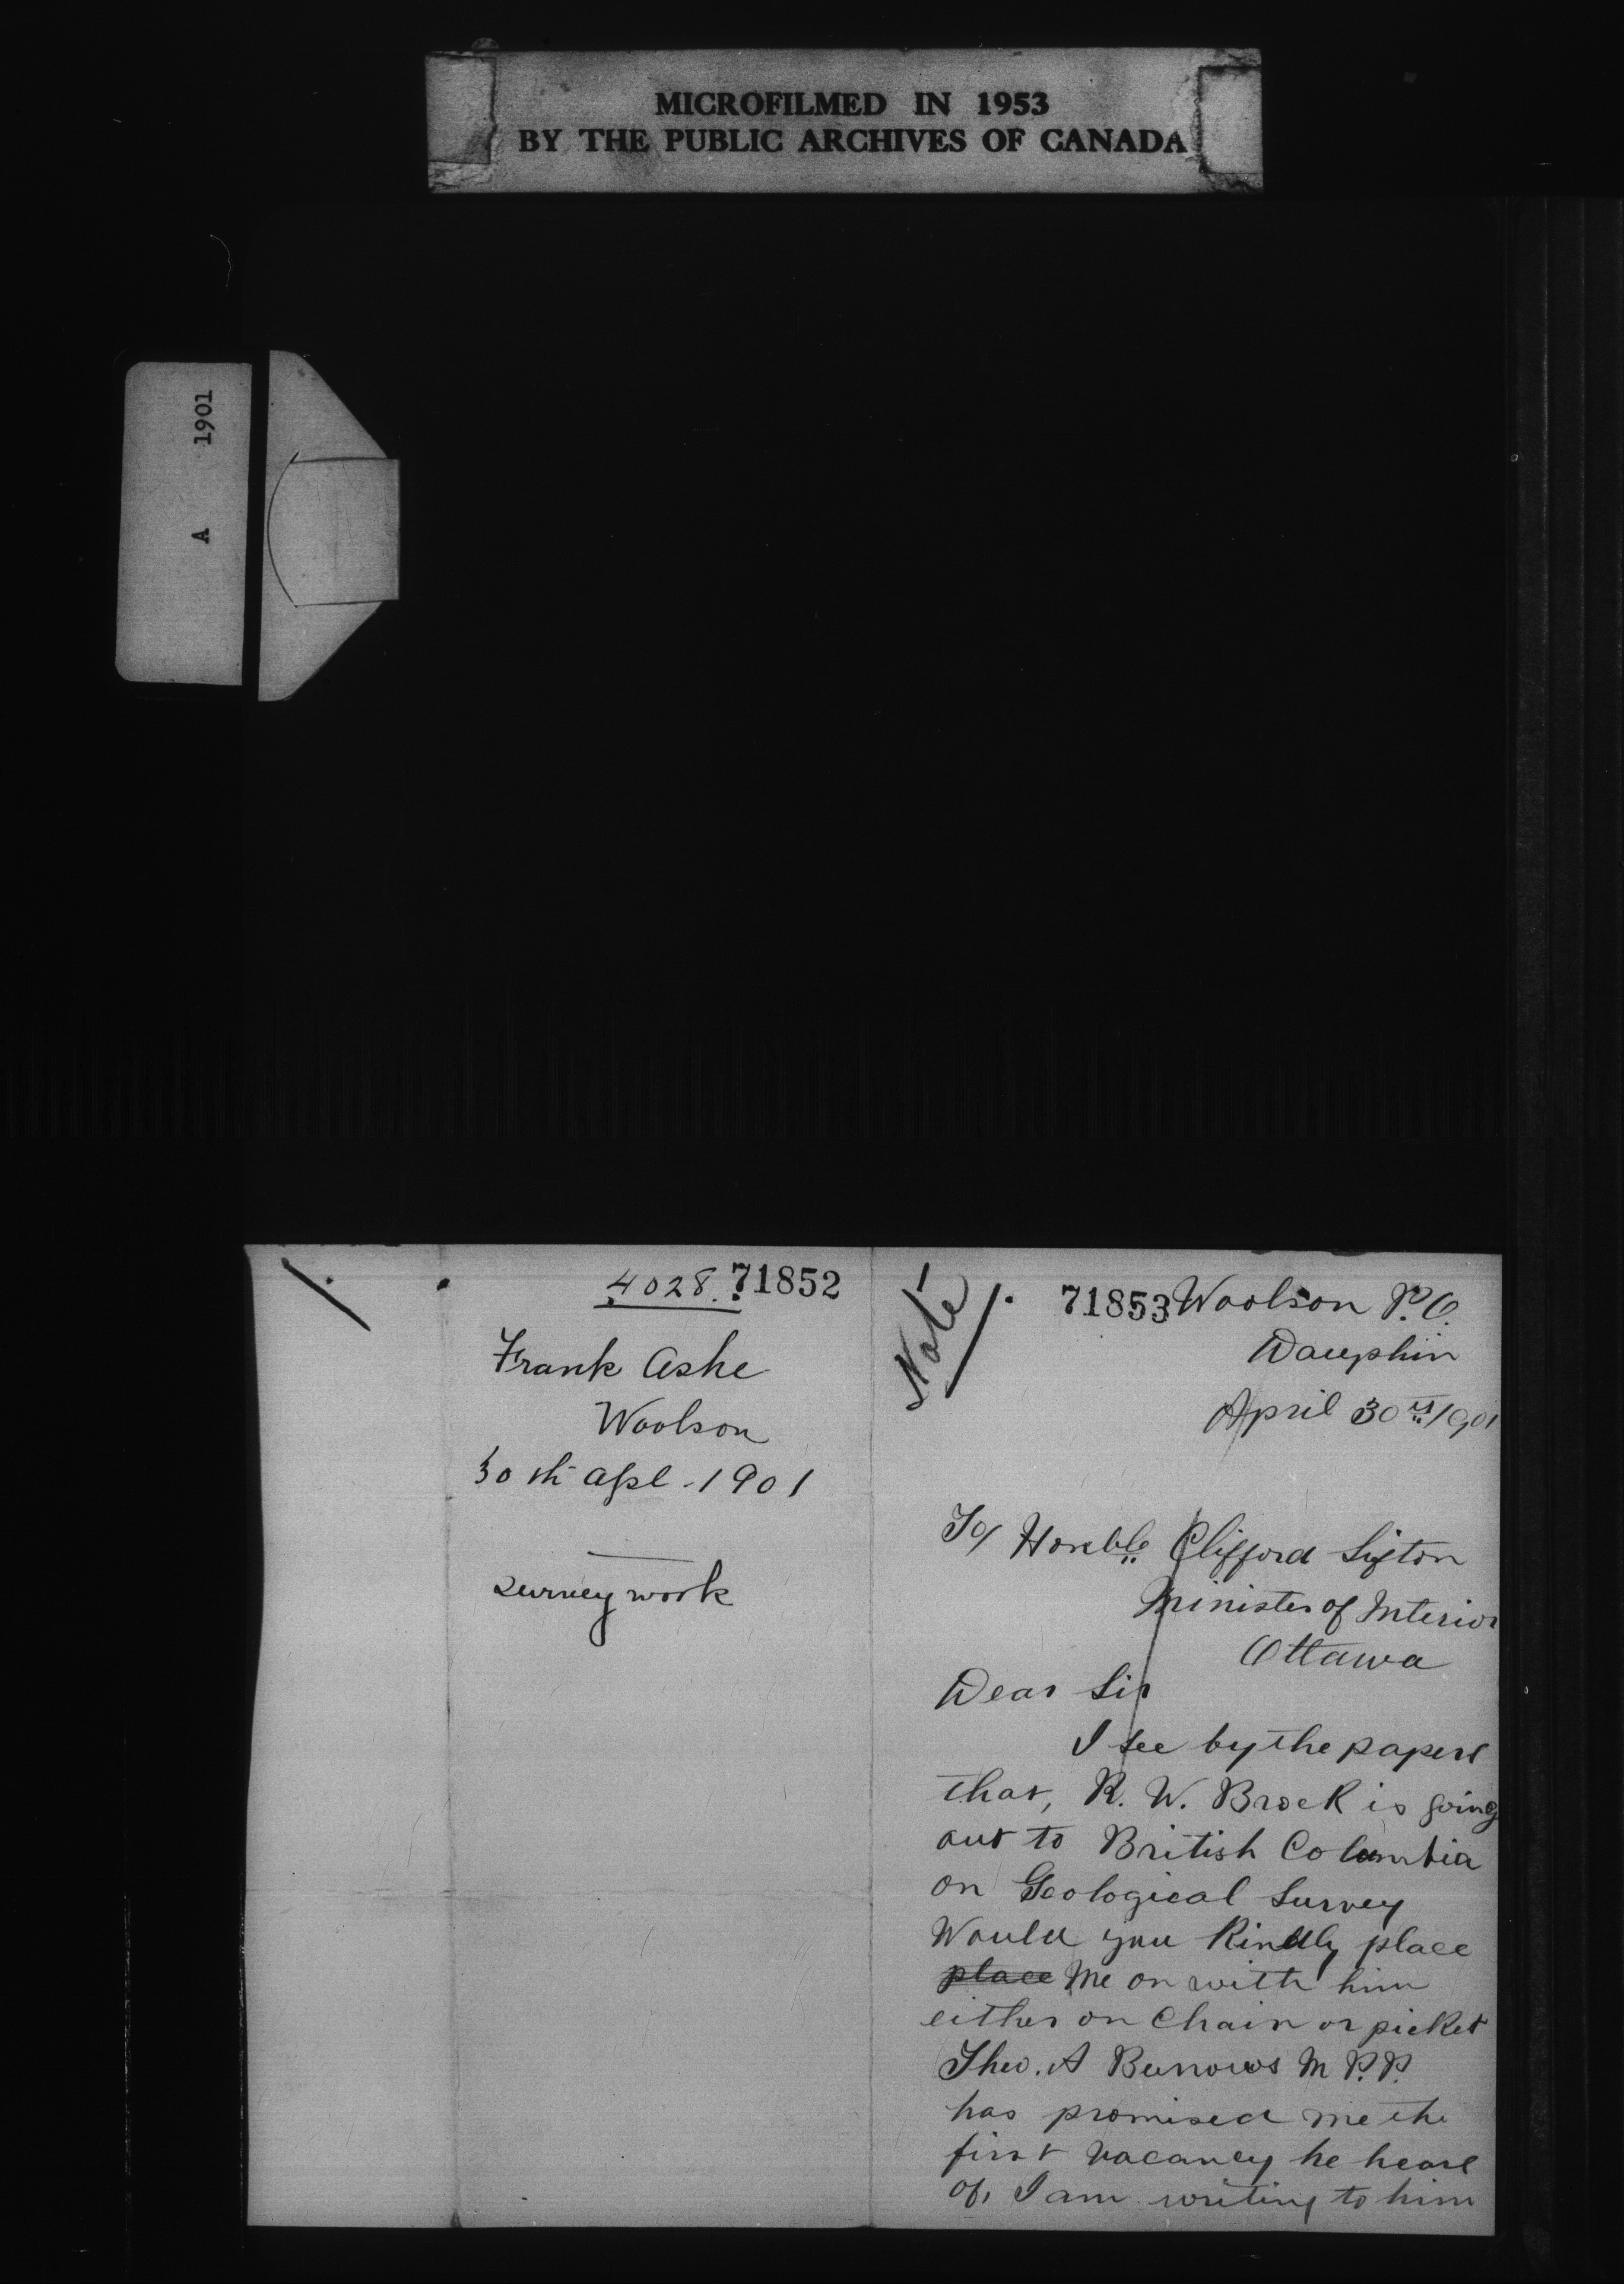 MICROFILMED IN 1953
BY THE PUBLIC ARCHIVES OF CANADA
A 1901
4028. 71852
Frank Ashe
Woolson
30th Apl - 1901
Survey work
Note
71853 Woolson P.O.
Dauphin
April 30th 1901
To/ Honble Clifford Sifton
Minister of Interior
Ottawa
Dear Sir
I see by the papers
that, R. W. Brock is going
out to British Columbia
on Geological Survey
Would you Kindly place
place me on with him
either on Chain or picket
Theo. A Burrows M P.P.
has promised me the
first vacancy he hears
of, I am writing to him